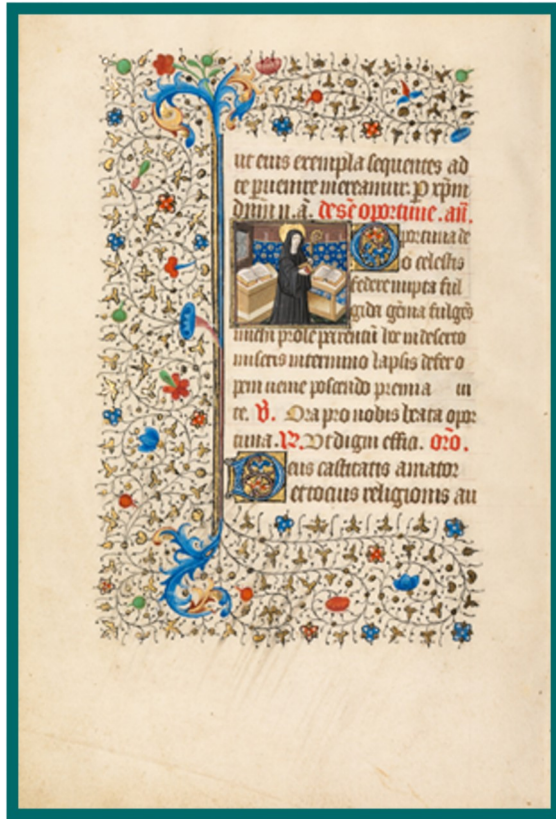 ut eius exempla sequentes ad
te puenire mereamur. P xpm
dnm n. a. de scē oportune. añ.
Oportuna de
o celestis
federe nupta ful
gida gēma fulgēs
michi prole parentū hoc in deserto
miseris in termino lapsis defer o
pem veni poscendo premia in
te. V. Ora pro nobis beata opor
tuna. R. Vt digni effic. orō.
Deus castitatis amator
et tocius religionis au